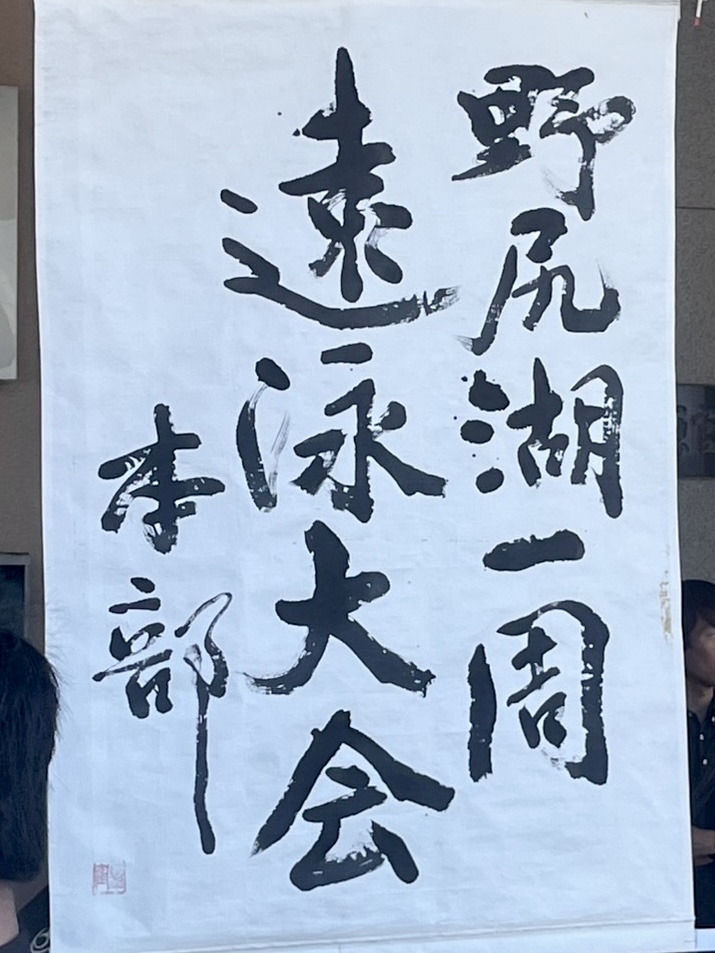 野尻湖一周
遠泳大会
本部